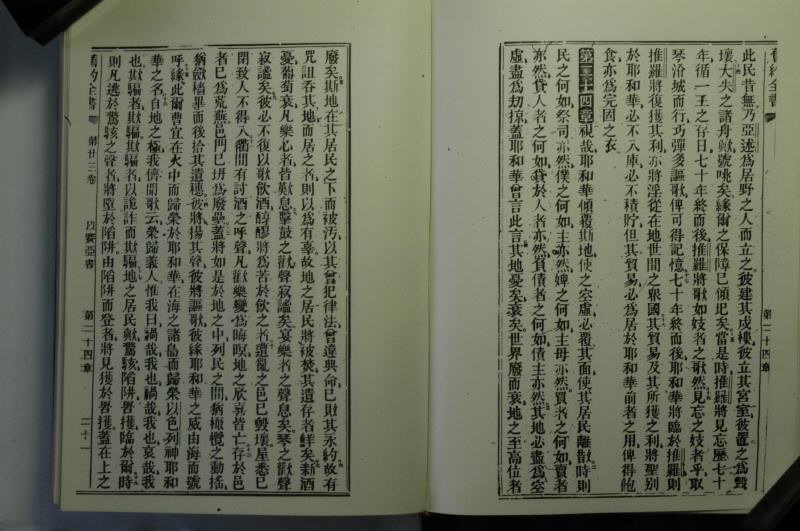 舊約全書
第二十四章
此民昔無乃亞述爲居野之人而立之彼建其戍樓彼立其宮室彼置之爲毀
壞大失之諸舟歟號咷矣緣爾之保障已傾圯矣當是時推羅將見忘歷七十
年循一王之存日七十年終而後推羅將歌如妓者之歌然見忘之妓者乎取
琴洽城而行巧彈多謳歌俾可得記憶七十年終而後耶和華將臨於推羅則
推羅將復獲其利亦將淫從在地世間之眾國其貿易及其所獲之利將聖别
於耶和華必不入庫必不積貯但其貿易必爲居於耶和華前者之用俾得飽
食亦爲完固之衣
第二十四章視哉耶和華傾覆斯地使之空虛必覆其面使其居民離散時則
民之何如祭司亦然僕之何如主亦然婢之何如主母亦然買者之何如賣者
亦然貸人者之何如貸於人者亦然負債者之何如債主亦然其地必盡爲空
虛盡爲刧掠蓋耶和華曾言此言其地憂矣衰矣世界廢而衰地之至高位者
廢矣斯地在其居民之下而被汚以其曾犯律法曾違典命已財其永約故有
咒詛吞其地而居之者則以爲有辜故地之居民將被焚其遺存者鮮矣新酒
憂葡萄衰凡樂心者皆歎息擊鼓之歡聲寂謐矣宴樂者之聲息矣琴之歡聲
寂謐矣彼必不復以歌飲酒醇醪將爲苦於飲之者遭亂之邑已毀壞屋悉已
閉致人不得入衢間有討酒之呼聲凡歡樂變爲晦暝地之欣喜皆亡存於邑
者已爲荒蕪邑門已坍爲廢壘蓋將如是於地之中列民之間猶橄欖之動搖
猶斂穡畢而後拾其遺穗彼將揚其聲彼將謳歌彼緣耶和華之威由海而號
呼緣此爾曹宜在火中而歸榮於耶和華在海之諸島而歸榮以色列神耶和
華之名自地之極我儕聞歌云榮歸義人惟我曰禍哉我也禍哉我也哀哉我
也欺騙者欺騙欺騙者以詭詐而欺騙地之居民歟驚駭陷阱罟擭臨於爾時
則凡逃於驚駭之聲者將墮於陷阱由陷阱而登者將見獲於罟擭蓋在上之
舊約全書
第廿三卷
以賽亞書
第二十四章
二十一